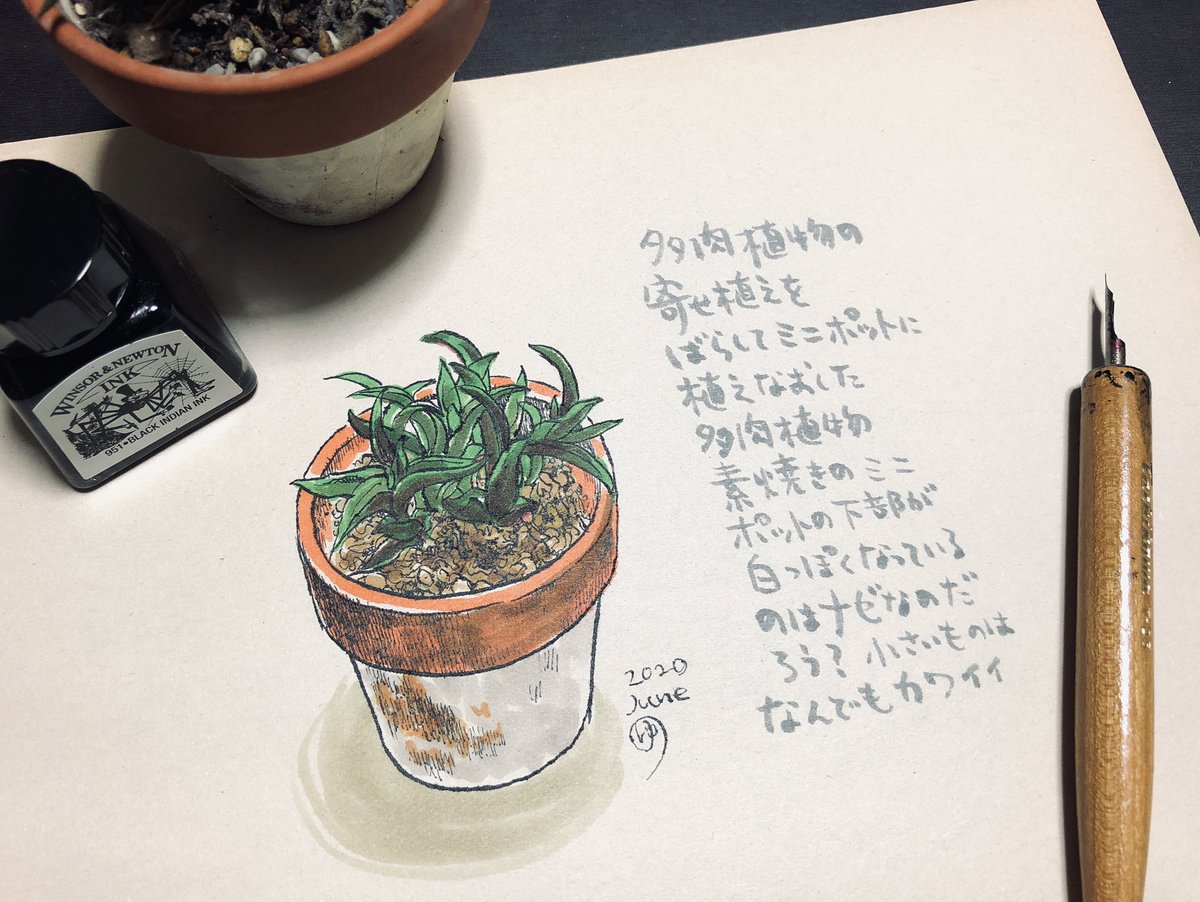 WINSOR & NEWTON
INK
951•BLACK INDIAN INK
多肉植物の
寄せ植えを
ばらしてミニポットに
植えなおした
多肉植物
素焼きのミニ
ポットの下部が
白っぽくなっている
のはナゼなのだ
ろう? 小さいものは
なんでもカワイイ
2020
June
ゆ